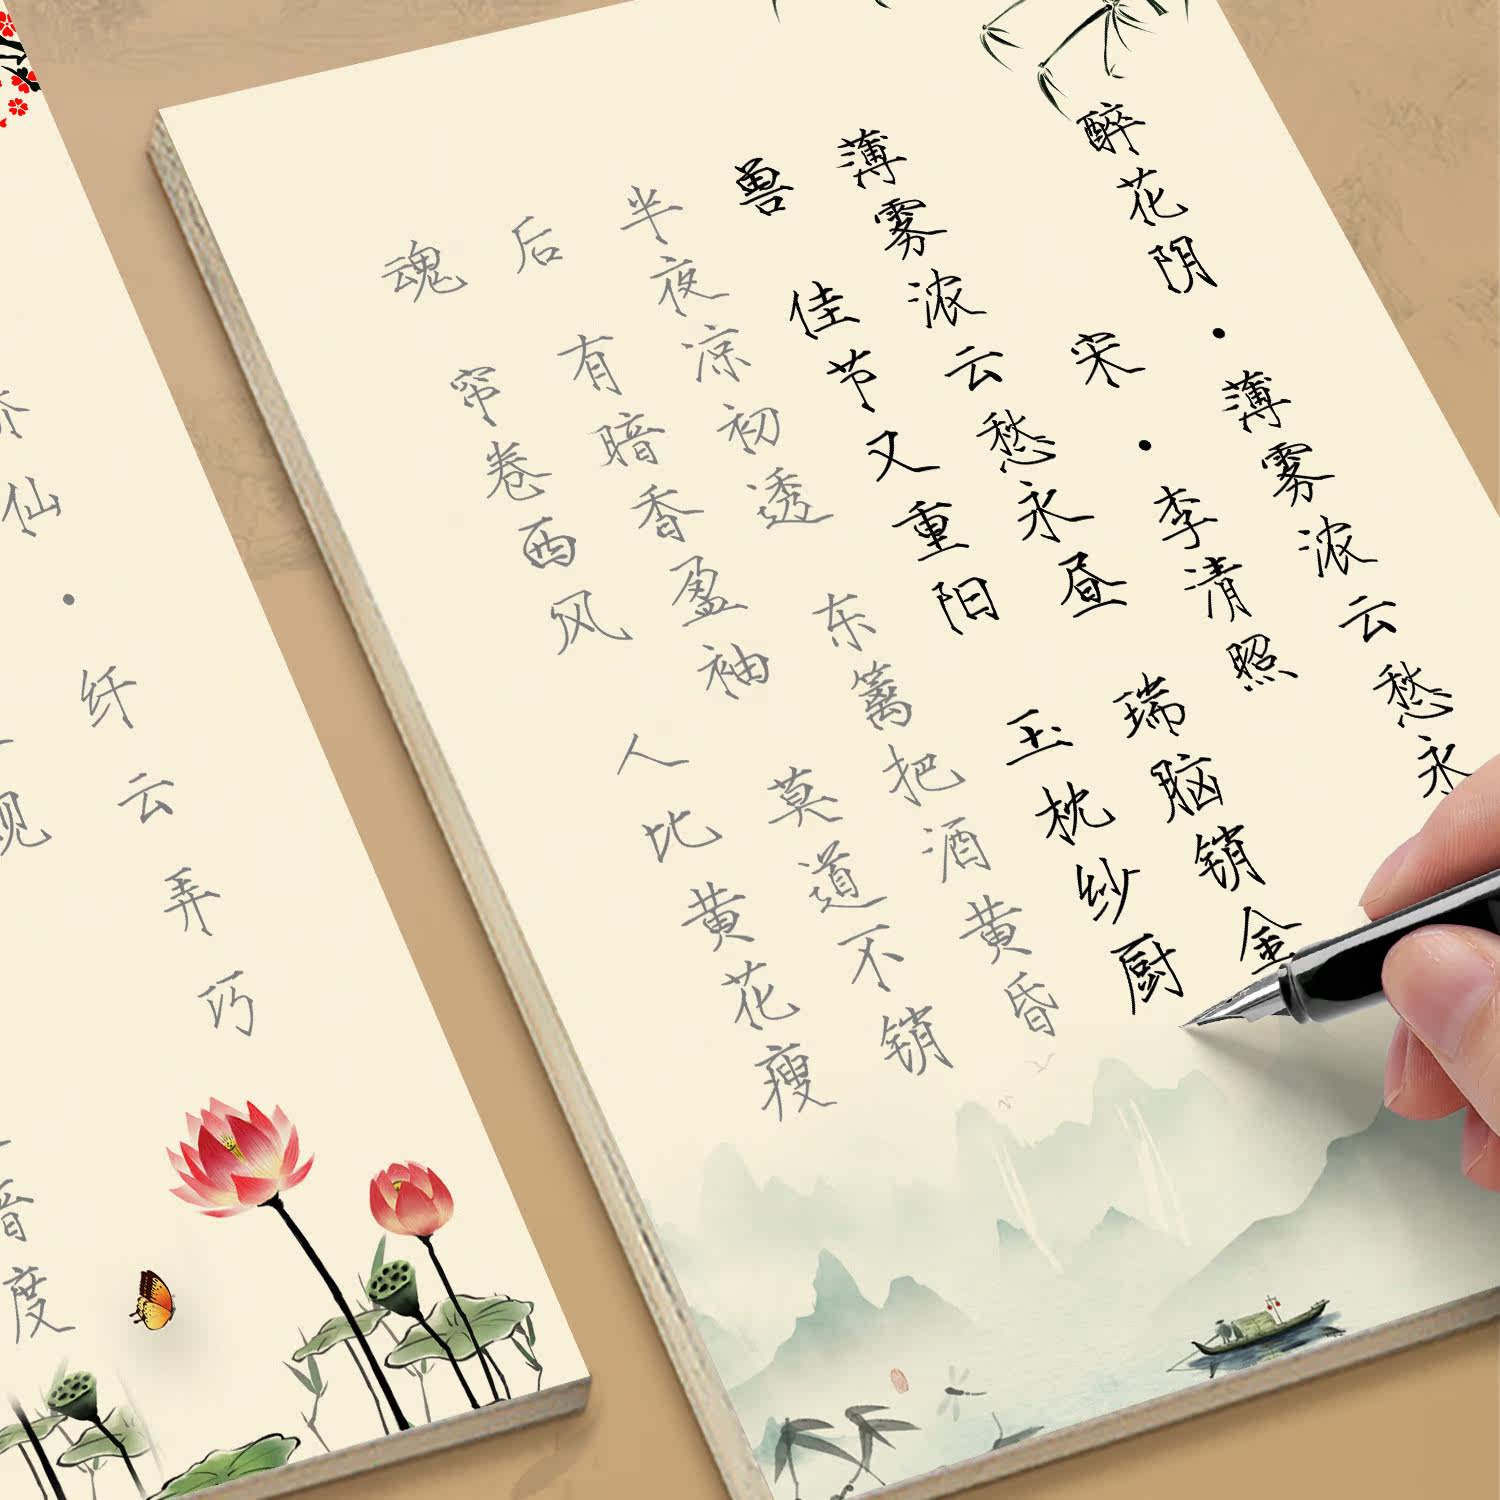 醉花阴·薄雾浓云愁永
宋·李清照
薄雾浓云愁永昼 瑞脑销金
兽 佳节又重阳 玉枕纱厨
半夜凉初透 东篱把酒黄昏
后 有暗香盈袖 莫道不销
魂 帘卷西风 人比黄花瘦
仙·纤云弄巧
度